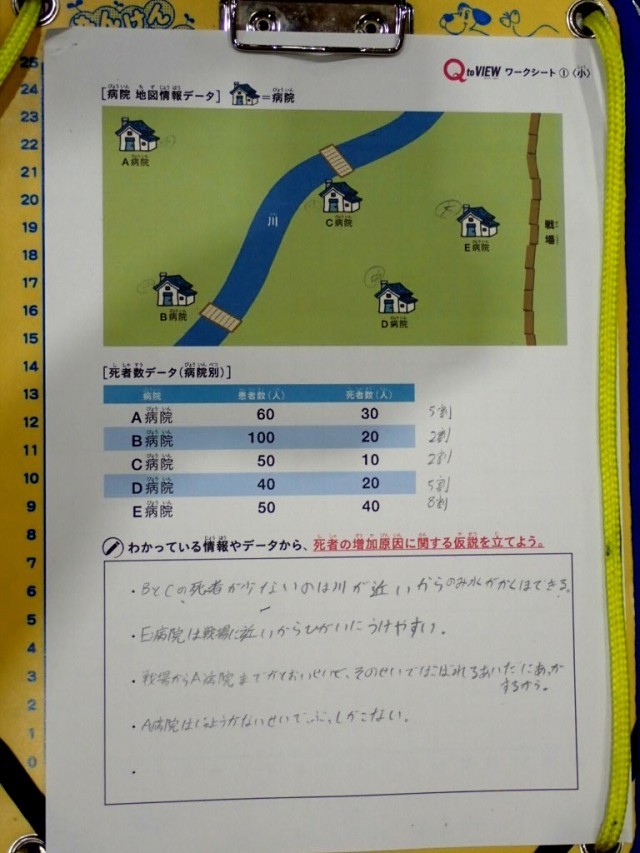 Q to VIEW ワークシート①〈小〉
[病院 地図情報データ] =病院
A病院
川
C病院
E病院
戦場
B病院
D病院
[死者数データ(病院別)]
病院 患者数(人) 死者数(人)
A病院 60 30 5割
B病院 100 20 2割
C病院 50 10 2割
D病院 40 20 5割
E病院 50 40 8割
わかっている情報やデータから、死者の増加原因に関する仮説を立てよう。
・BとCの死者が少ないのは川が近いからのみ水がかくほできる。
・E病院は戦場に近いからひがいにうけやすい。
・戦場からA病院まで がとおいせいで、そのせいではこばれるあいだにあっか
するから。
・A病院は がないせいでぶっしがこない。
・
25
24
23
22
21
20
19
18
17
16
15
14
13
12
11
10
9
8
7
6
5
4
3
2
1
0